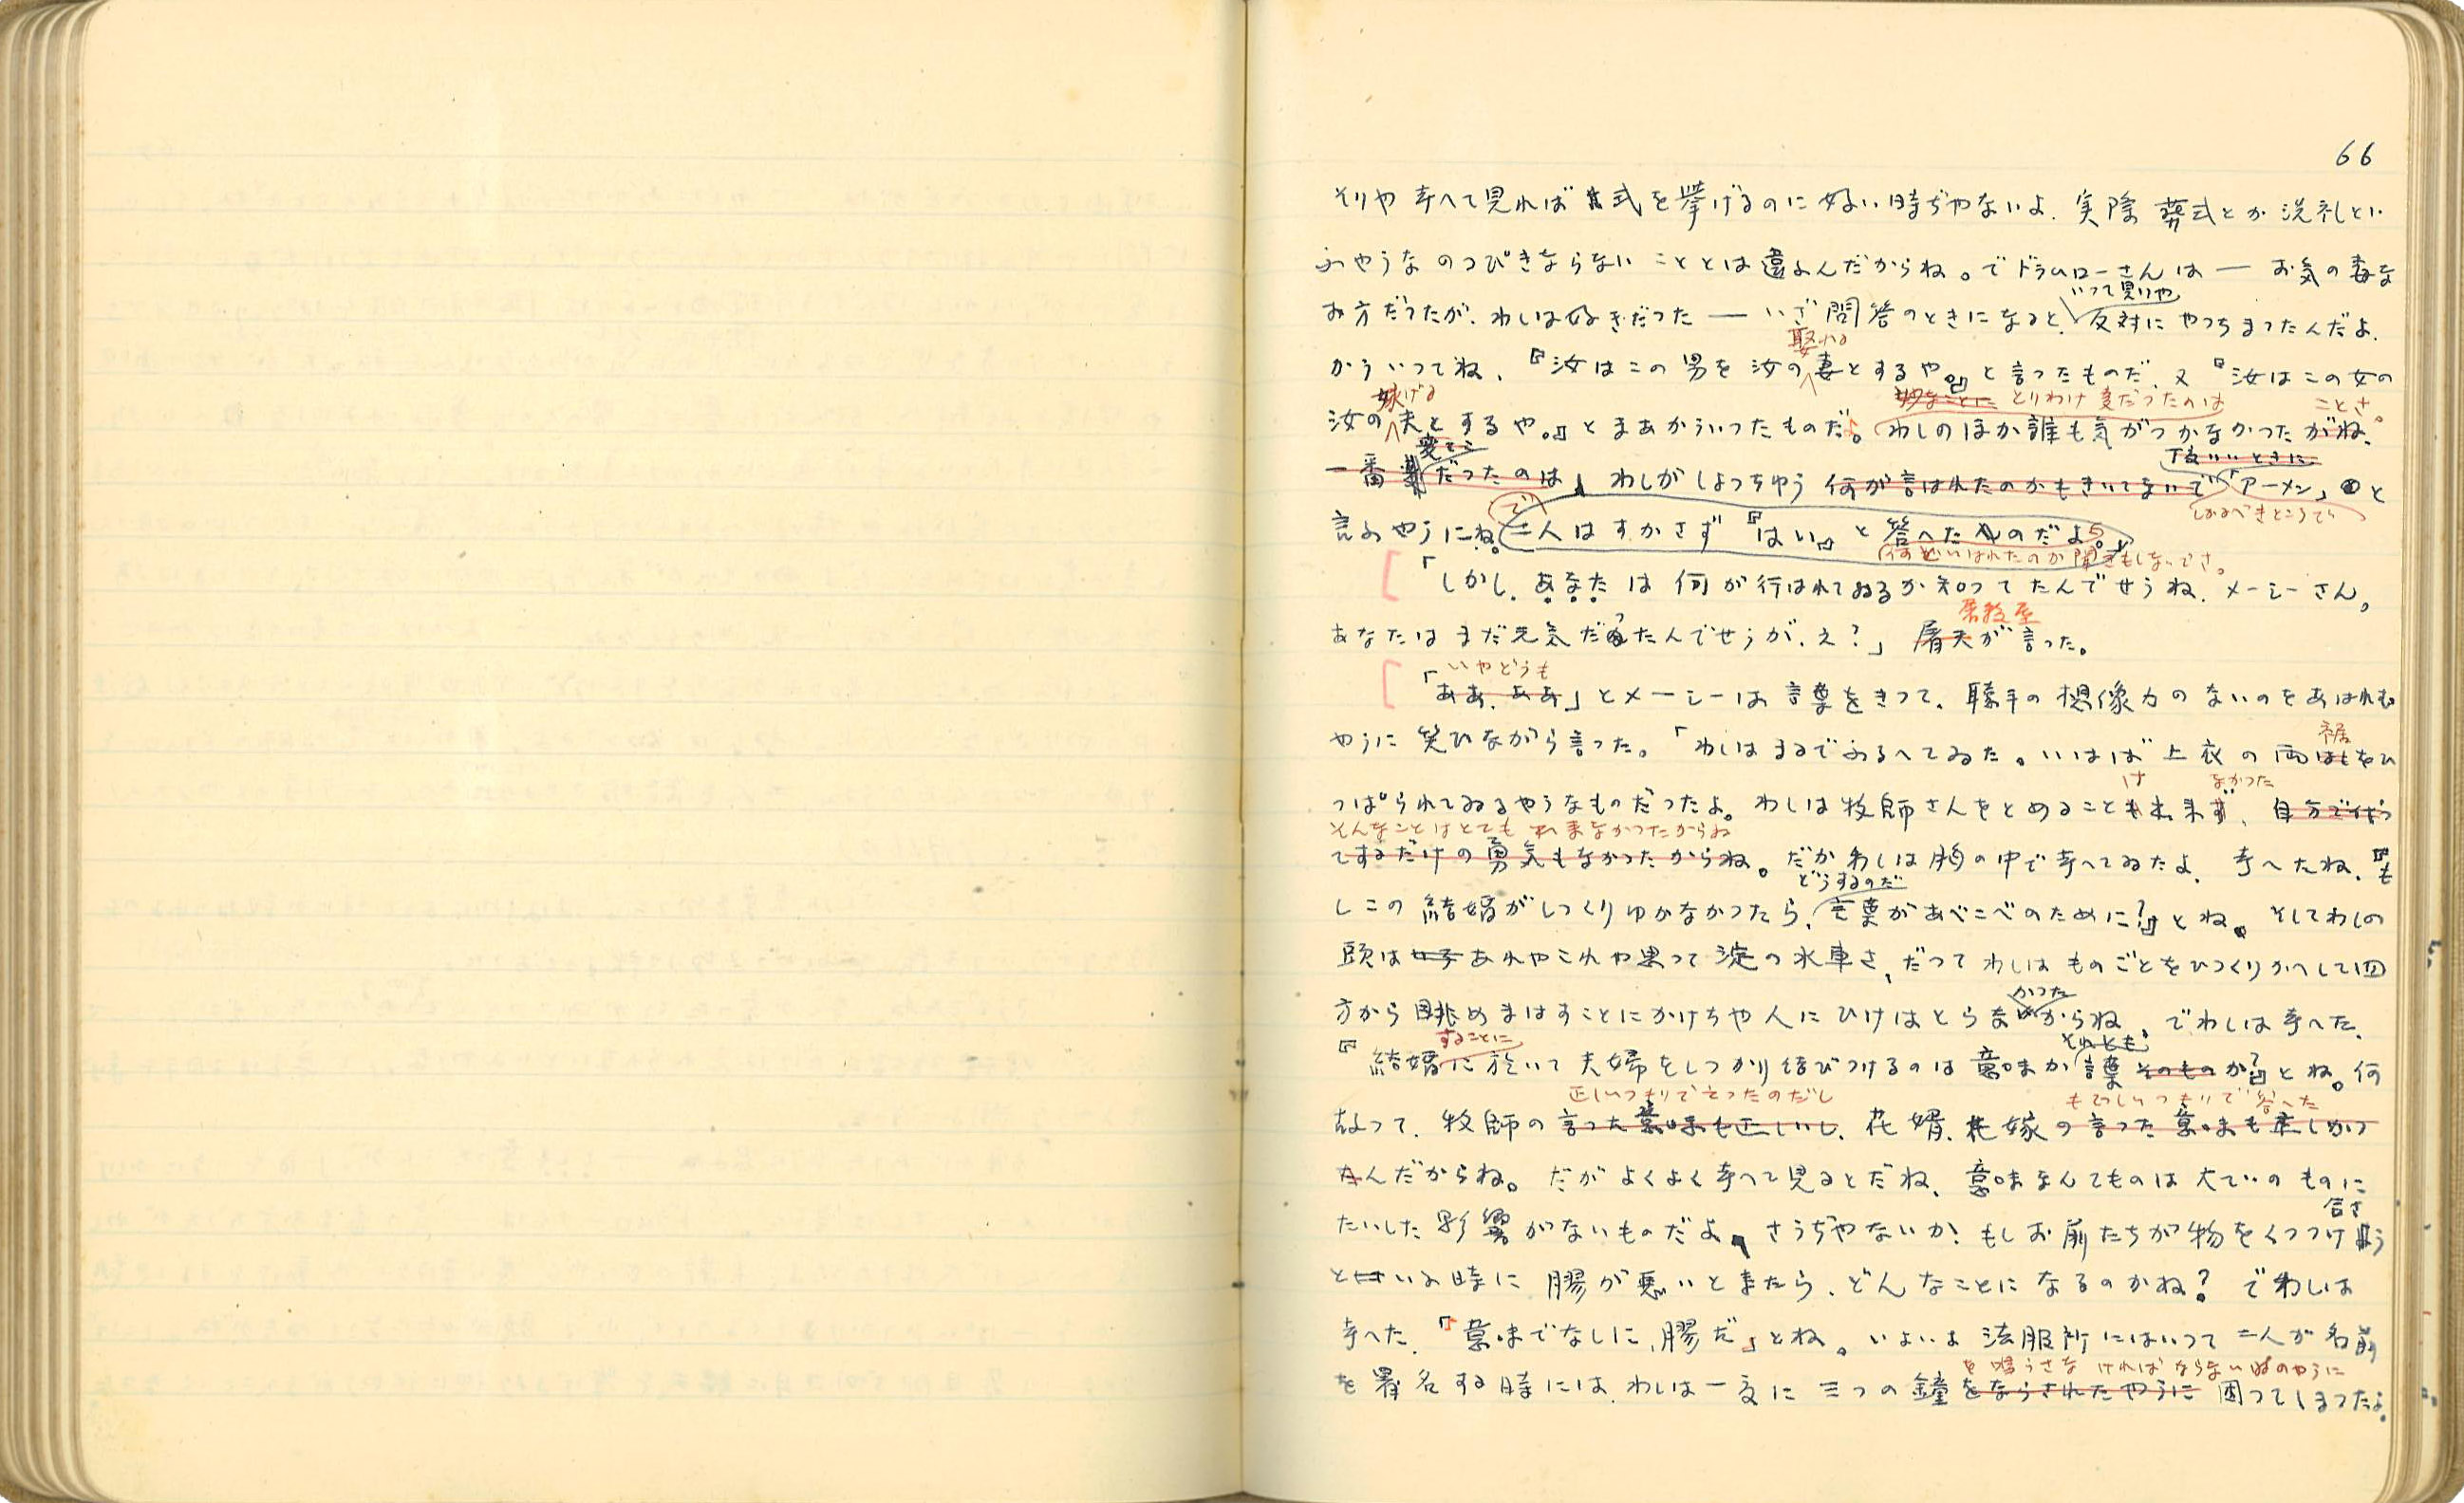 66
そりや考へて見れば式を挙げるのに好い時ぢやないよ、実際葬式とか洗礼とい
ふやうなのつぴきならないこととは違ふんだからね。でドラムローさんは — お気の毒な
いつて見りや
お方だつたが、わしは好きだつた — いざ問答のときになると、反対にやつちまつたんだよ、
娶れる
かういつてね、『汝はこの男を汝の妻とするや。』と言つたものだ、又『汝はこの女の
嫁げる
妙なことに とりわけ変だつたのは
ことさ。
汝の夫とするや。』とまあかういつたものだよ。わしのほか誰も気がつかなかつたがね、
変てこ
丁度いいときに
一番だつたのは、わしがしよつちゆう何が言はれたのかもきいてないで「アーメン」と
で
しかるべきところで
言ふやうにね。二人はすかさず『はい。』と答へたものだよ。
何といはれたのか聞きもしないでさ。
「しかし、あなたは何が行はれてゐるか知つてたんでせうね、メーシーさん。
屠殺屋
あなたはまだ元気だつたんでせうが、え?」屠夫が言った。
いやどうも
「ああ、ああ」とメーシーは言葉をきつて、聴手の想像力のないのをあはれむ
やうに笑ひながら言った。「わしはまるでふるへてゐた。いはば上衣の両はしをひ
裾
つぱられてゐるやうなものだつたよ。わしは牧師さんをとめることも出来ず、自分で代つ
は なかつた
そんなことはとても出来なかつたからね
てするだけの勇気もなかつたからね。だがわしは胸の中で考へてゐたよ、考へたね、『も
どうするのだ
しこの結婚がしつくりゆかなかつたら、言葉があべこべのために?』とね。そしてわしの
頭はあれやこれや思つて淀の水車さ、だつてわしはものごとをひつくりかへして四
かつた
方から眺めまはすことにかけちや人にひけはとらなからね、でわしは考へた、
することに
それとも
『結婚に於いて夫婦をしつかり結びつけるのは意味か言葉そのものか?』とね。何
正しいつもりで言つたのだし
も正しいつもりで答へた
故つて、牧師の言つた意味も正しいし、花婿、花嫁の言つた意味も正しかつ
たんだからね。だがよくよく考へて見るとだね、意味なんてものは大ていのものに
合さ
たいした影響がないものだよ、さうぢやないか!もしお前たちが物をくつつけよう
といふ時に膠が悪いときたら、どんなことになるのかね?でわしは
考へた、『意味でなしに、膠だ』とね。いよいよ法服所にはいつて二人が名前
を鳴らさなければならないもののやうに
を署名する時には、わしは一度に三つの鐘をならされたやうに困つてしまつたよ。